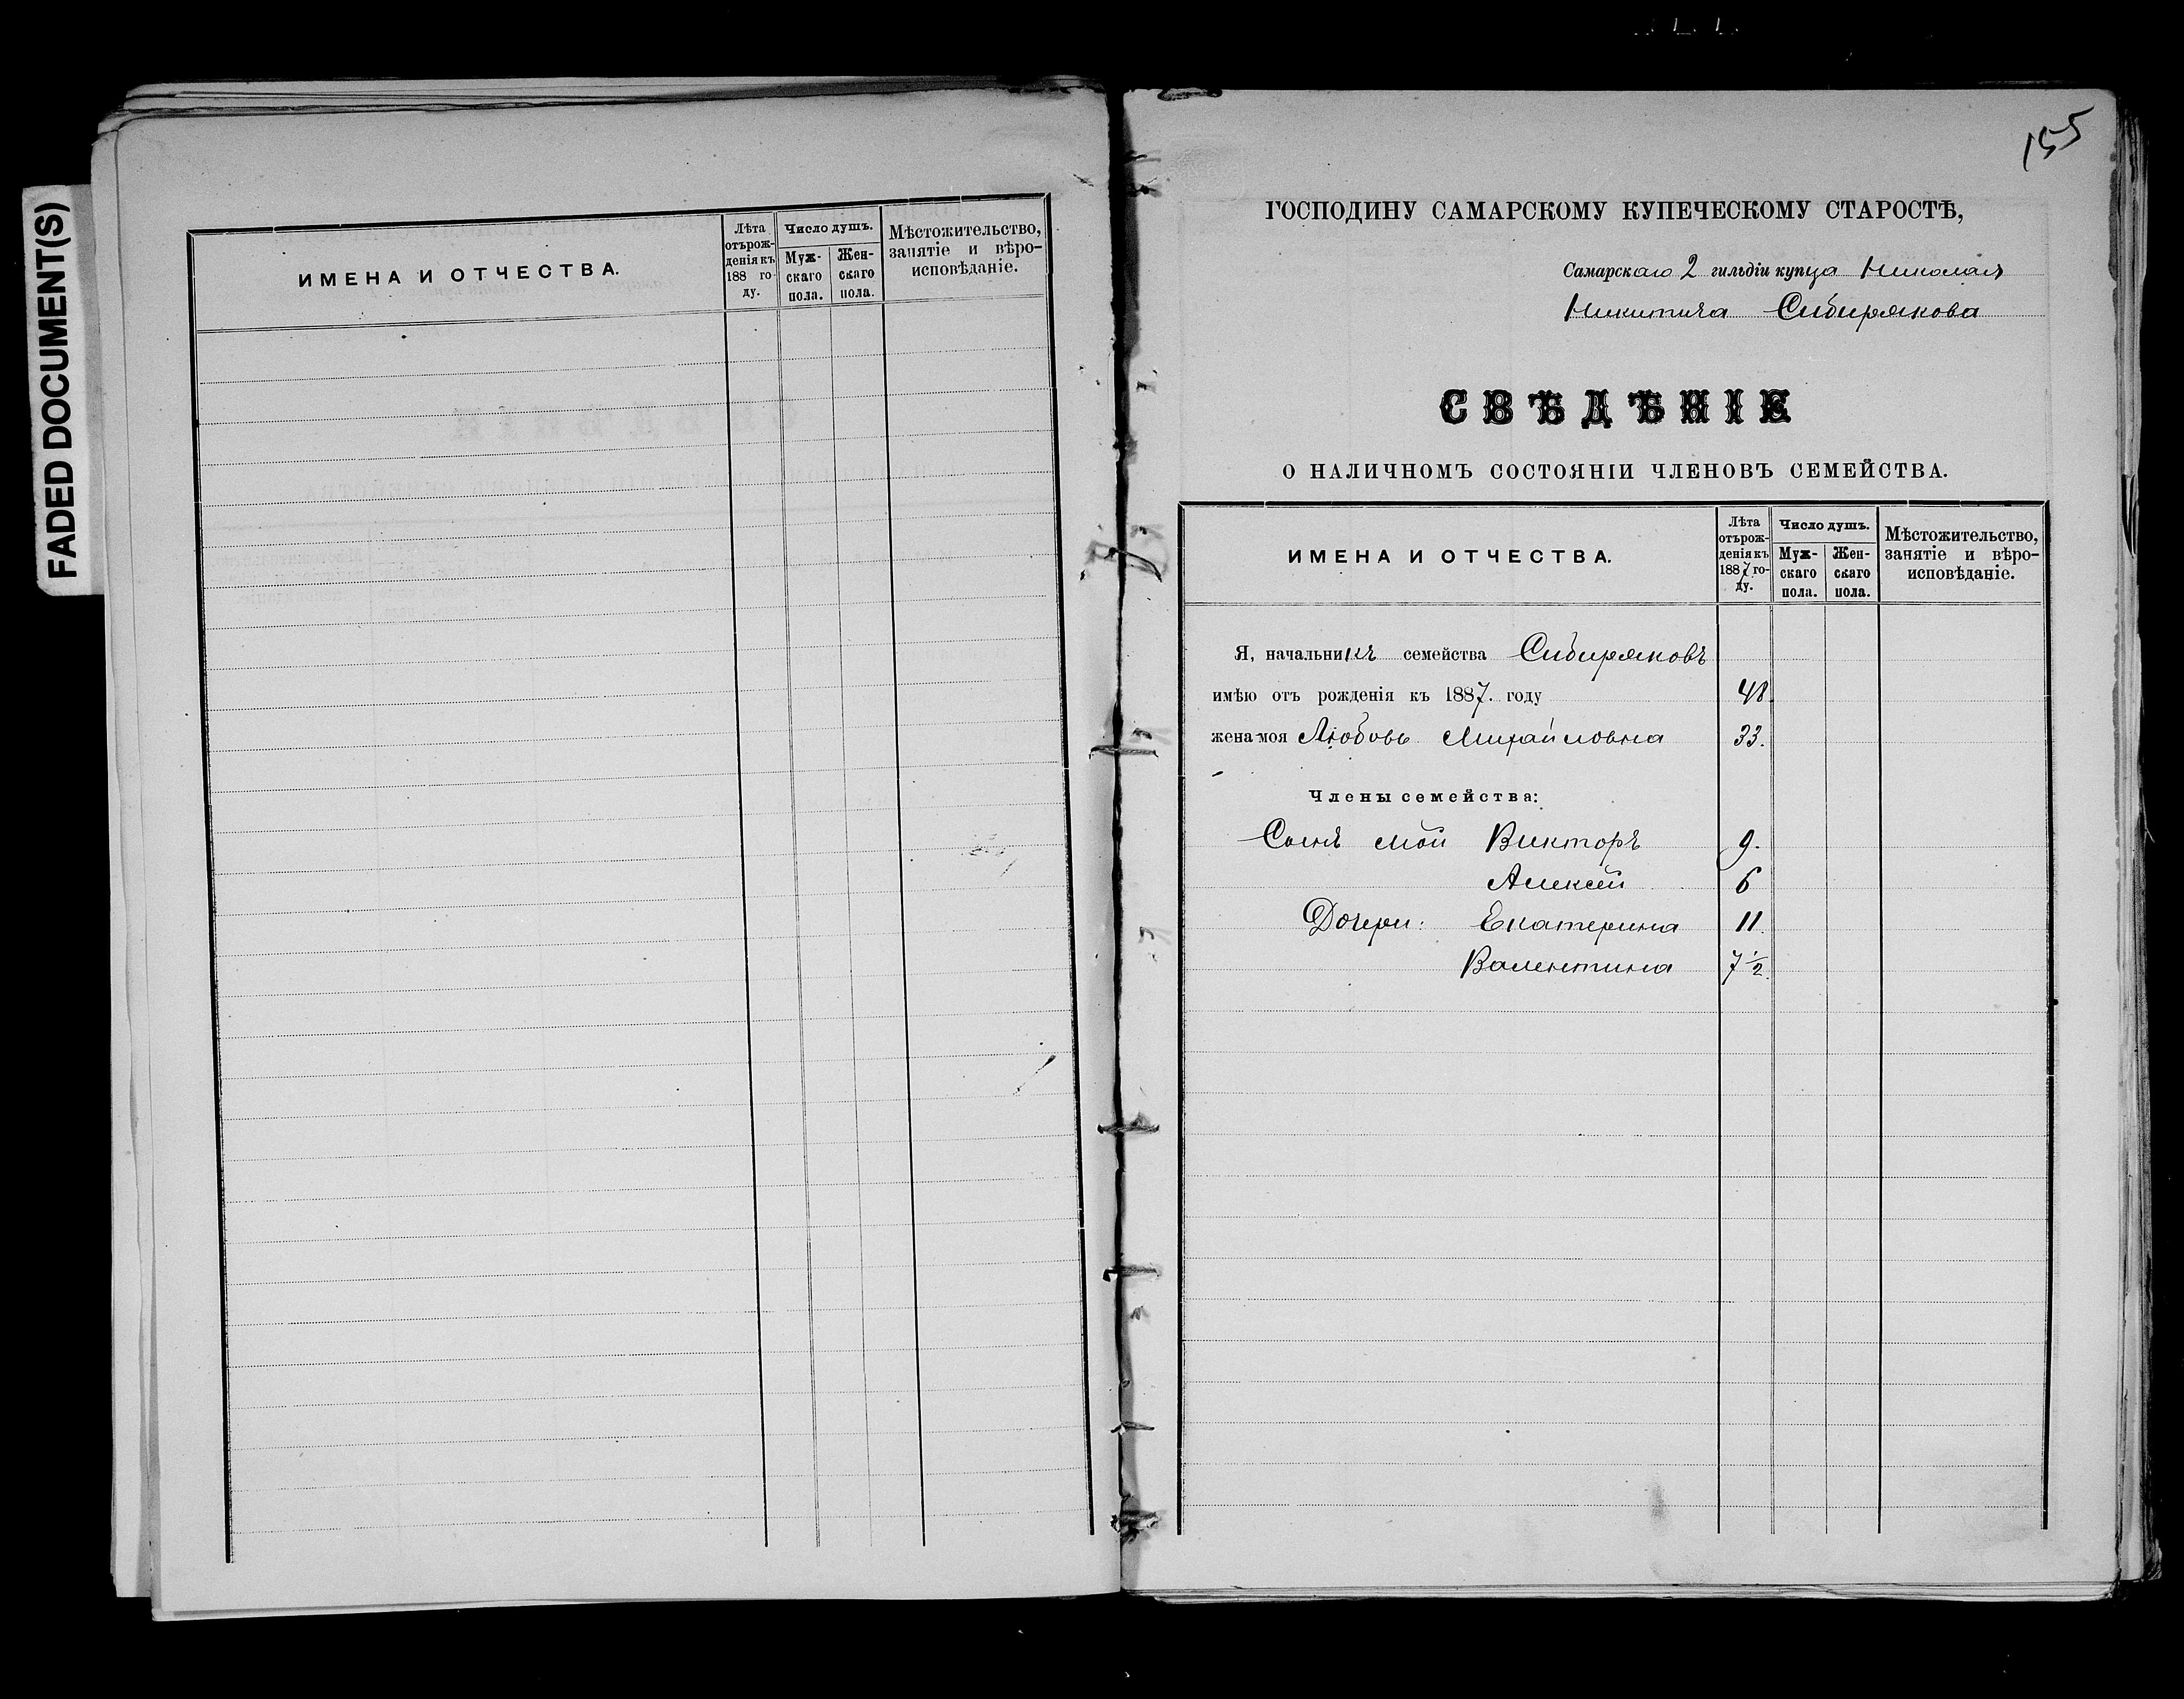 FADED DOCUMENT(S)
ИМЕНА И ОТЧЕСТВА.
Лѣта
отърож-
денія къ
188 го-
ду.
Число душъ.
Муж-
скаго
пола.
Жен-
скаго
пола.
Мѣстожительство,
занятіе и вѣро-
исповѣданіе.
155
ГОСПОДИНУ САМАРСКОМУ КУПЕЧЕСКОМУ СТАРОСТѢ,
Самарскаго 2 гильдіи купца Николая
Никитича Сибирякова
СВѢДѢНІЕ
О НАЛИЧНОМЪ СОСТОЯНІИ ЧЛЕНОВЪ СЕМЕЙСТВА.
ИМЕНА И ОТЧЕСТВА.
Лѣта
отърож-
денія къ
1887 го-
ду.
Число душъ.
Муж-
скаго
пола.
Жен-
скаго
пола.
Мѣстожительство,
занятіе и вѣро-
исповѣданіе.
Я, начальникъ семейства Сибиряковъ
имѣю отъ рожденія къ 1887. году 48.
жена моя Любовь Михайловна 33.
Члены семейства:
Сынъ мой Викторъ 9.
Алексѣй 6
Дочери: Екатерина 11.
Валентина 7 1/2.